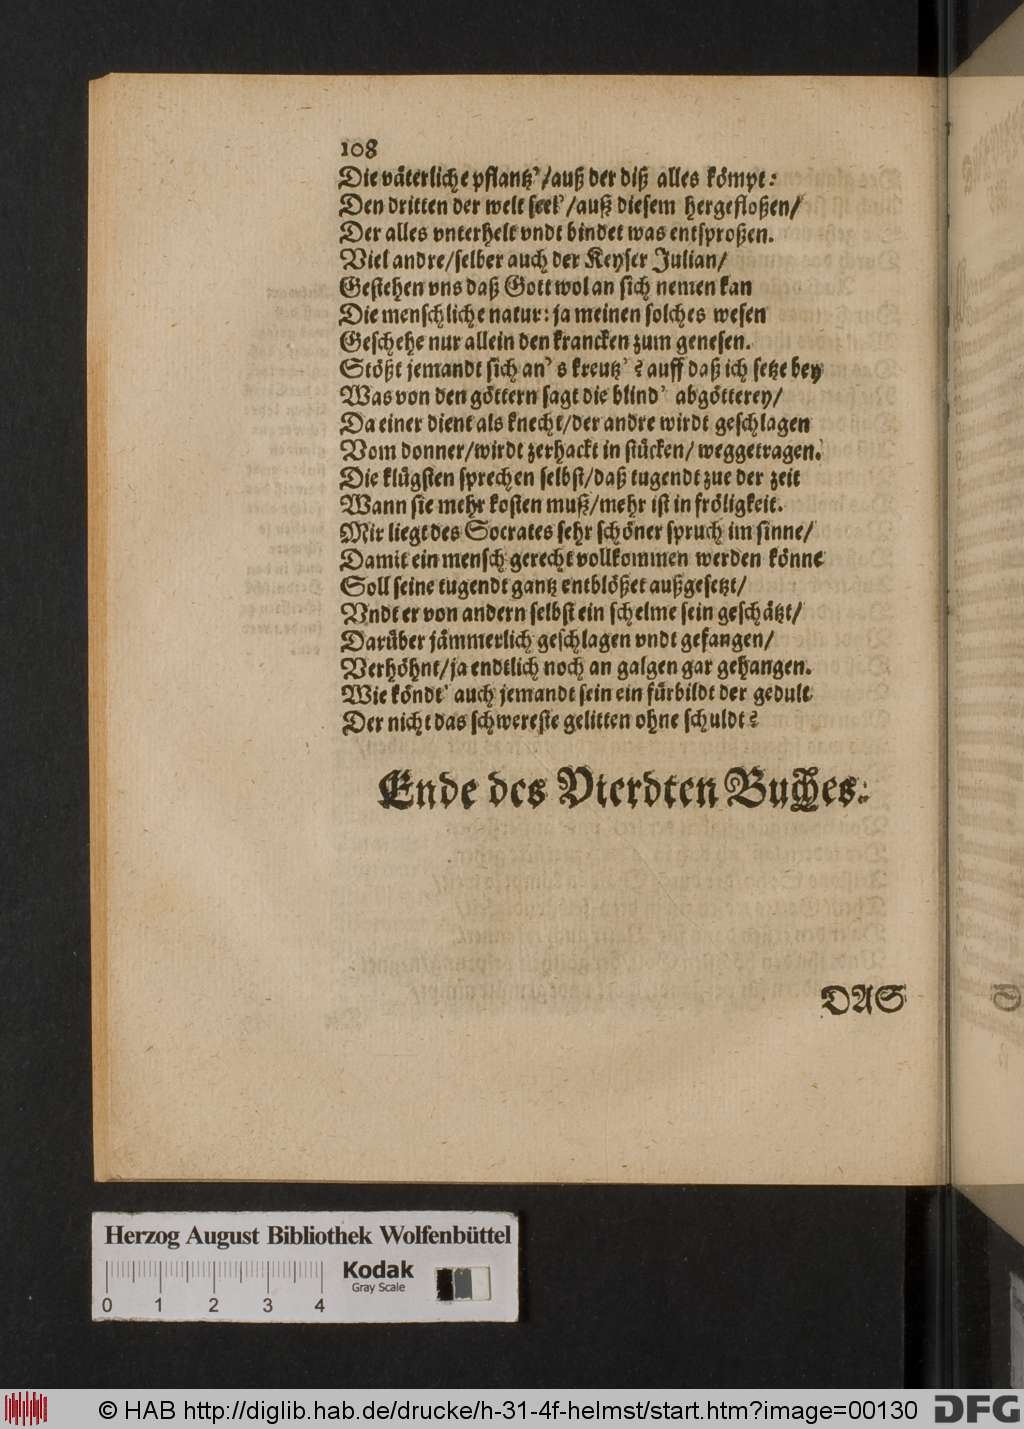 108
Die väterliche pflantz'/auß der diß alles kömpt:
Den dritten der welt seel'/auß diesem hergefloßen/
Der alles vnterhelt vndt bindet was entsproßen.
Viel andre/selber auch der Keyser Julian/
Gestehen vns daß Gott wol an sich nemen kan
Die menschliche natur: ja meinen solches wesen
Geschehe nur allein den krancken zum genesen.
Stößt jemandt sich an's kreutz'? auff daß ich setze bey
Was von den göttern sagt die blind' abgötterey/
Da einer dient als knecht/der andre wirdt geschlagen
Vom donner/wirdt zerhackt in stücken/ weggetragen.
Die klügsten sprechen selbst/daß tugendt zue der zeit
Wann sie mehr kosten muß/mehr ist in fröligkeit.
Mir liegt des Socrates sehr schöner spruch im sinne/
Damit ein mensch gerecht vollkommen werden könne
Soll seine tugendt gantz entblößet außgesetzt/
Vndt er von andern selbst ein schelme sein geschätzt/
Darüber jämmerlich geschlagen vndt gefangen/
Verhöhnt/ja endtlich noch an galgen gar gehangen.
Wie köndt' auch jemandt sein ein fürbildt der gedult
Der nicht das schwereste gelitten ohne schuldt?
Ende des Vierdten Buches.
DAS
Herzog August Bibliothek Wolfenbüttel
Kodak
Gray Scale
0 1 2 3 4
© HAB http://diglib.hab.de/drucke/h-31-4f-helmst/start.htm?image=00130
DFG